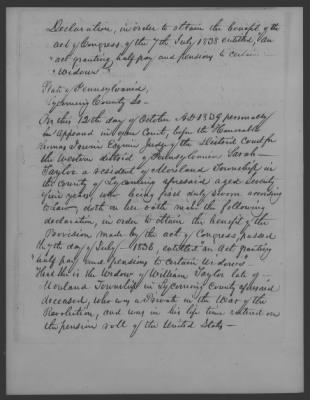 Declaration, in order to obtain the benefit of the
act of Congress, of the 7th July 1838 entitled, "An
act granting half pay and pensions to certain
widows"
State of Pennsylvania,
Lycoming County Ss
On this 12th day of October AD 1839 personally
appeared in open Court, before the Honorable
Thomas Irwin Esquire Judge of the District Court for
the Western district of Pennsylvania Sarah
Taylor a resident of Moreland Township in
the County of Lycoming aforesaid aged Seventy
five years, who being first duly Sworn according
to law, doth on her oath make the following
declaration, in order to obtain the benefit of the
Provision made by the act of Congress, passed
the 7th day of July 1838, entitled "an Act granting
half pay and pensions to certain Widows"
That she is the Widow of William Taylor late of
Moreland Township in Lycoming County aforesaid
deceased, who was a Private in the War of the
Revolution, and was in his life time entered on
the pension roll of the United States